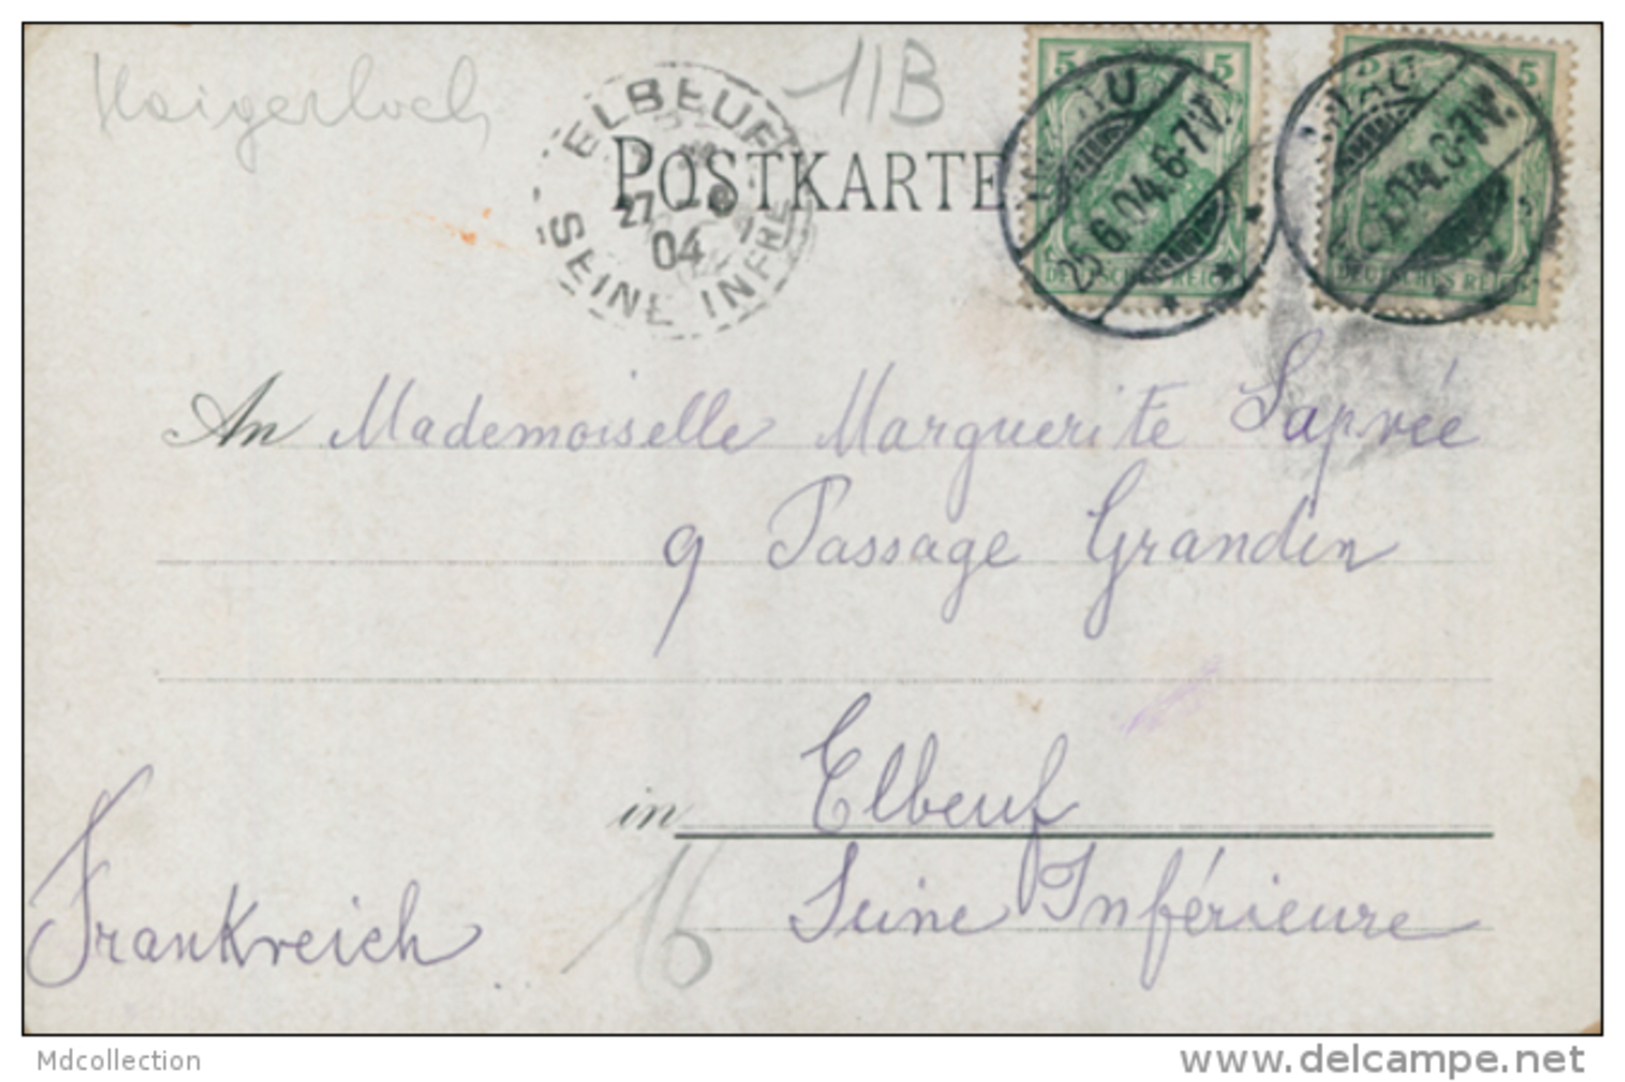 Haigerloch
11B
ELBEUF
27
04
SEINE INFRE
POSTKARTE.
5 5
25 6.04. 6-7V.
DEUTSCHES REICH
5 5
6-7V.
DEUTSCHES REICH
An Mademoiselle Marguerite
9 Passage Grandin
in Elbeuf
Seine Inférieure
Frankreich
16
Mdcollection
www.delcampe.net